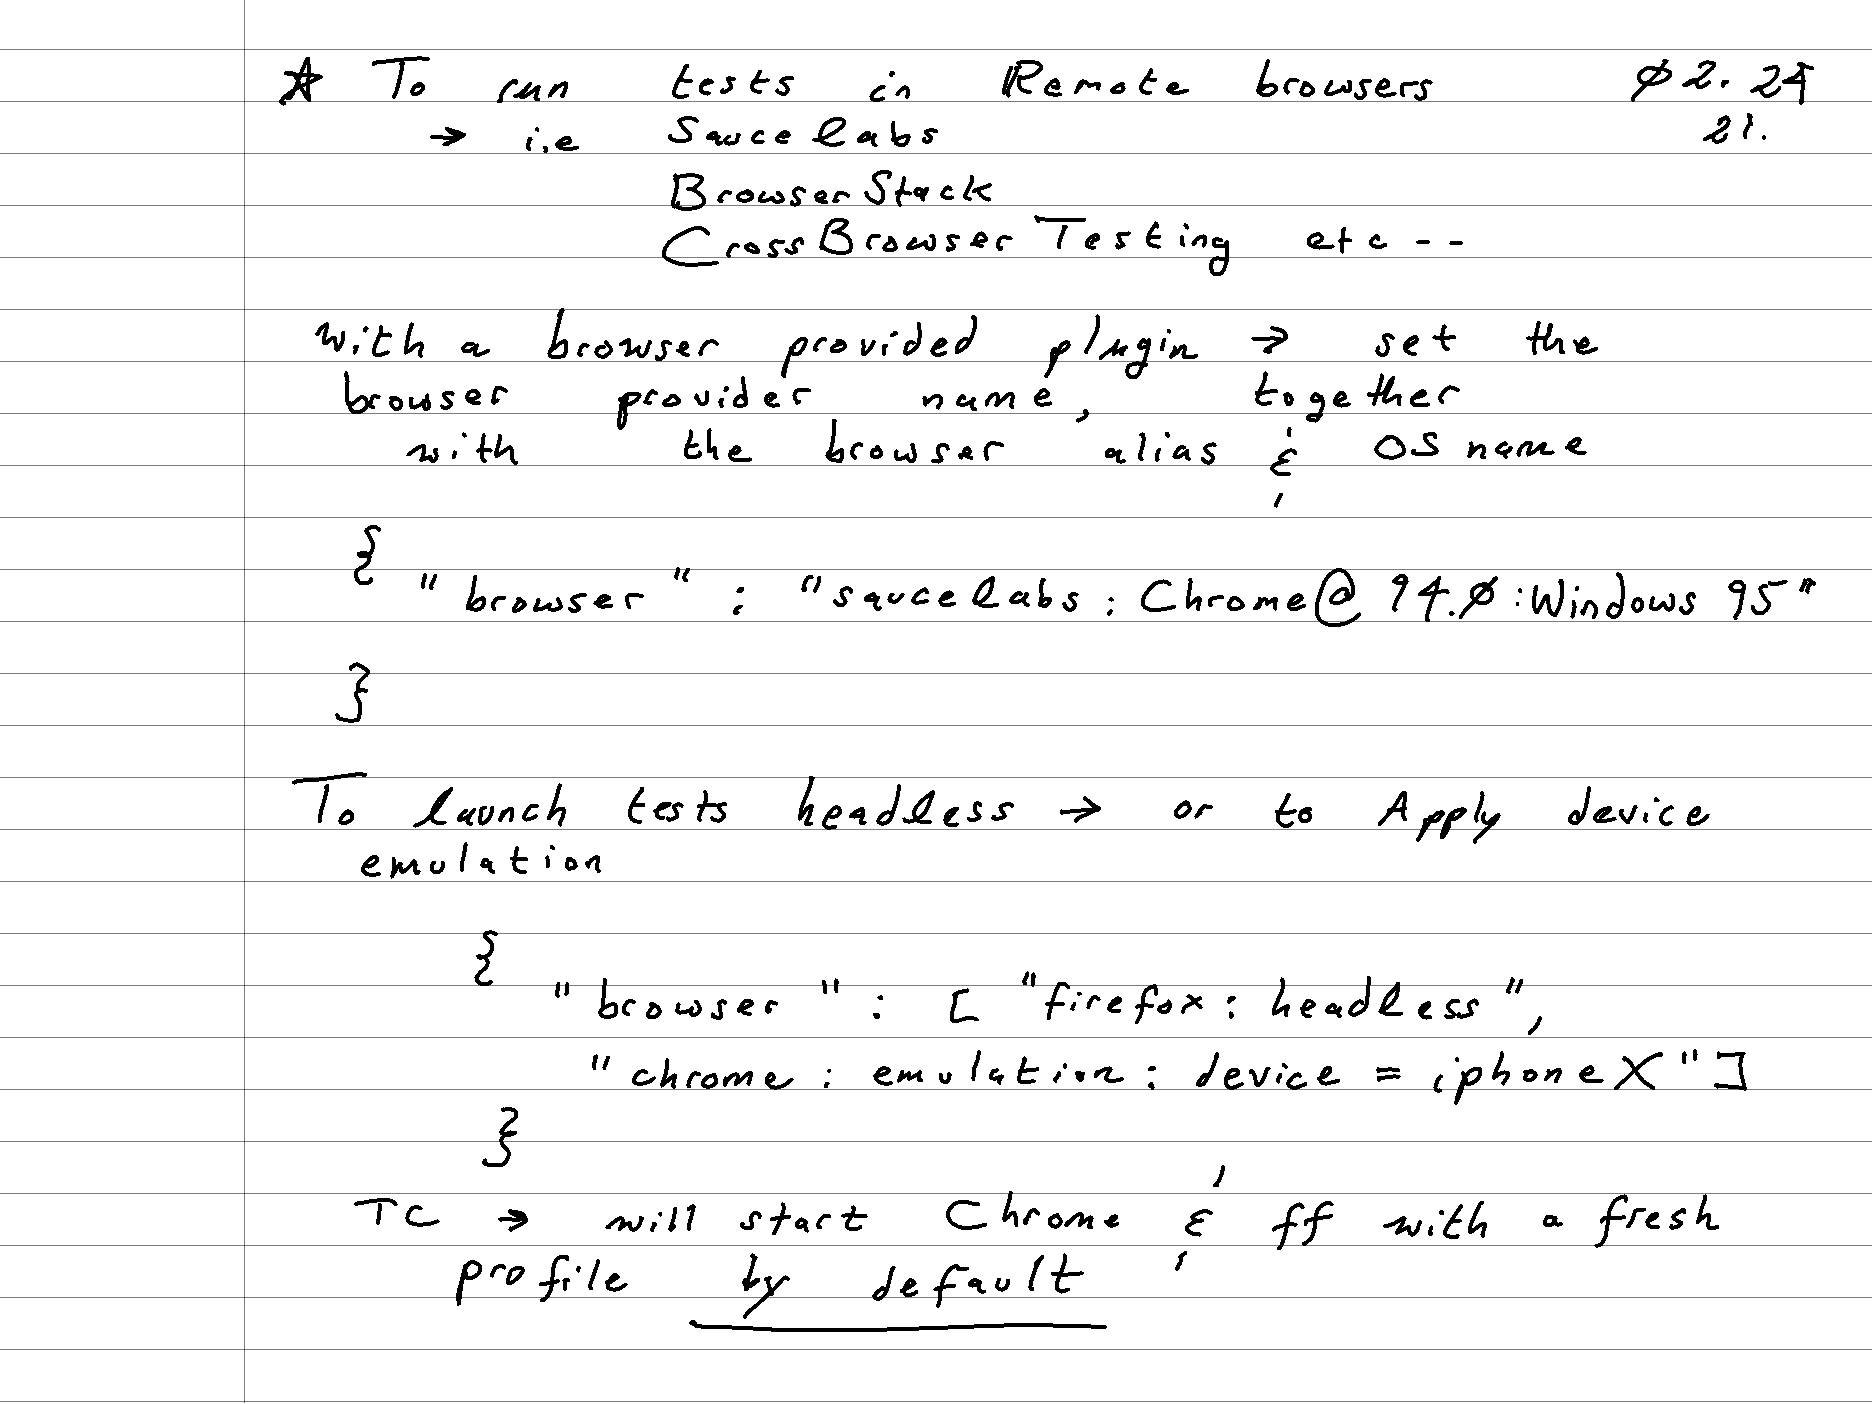 ☆ To run tests in Remote browsers 02.24
→ i.e Saucelabs 21.
BrowserStack
CrossBrowserTesting etc --
with a browser provided plugin → set the
browser provider name, together
with the browser alias & OS name
{
"browser" : "saucelabs : Chrome@ 94.0 : Windows 95"
}
To launch tests headless → or to Apply device
emulation
{
"browser" : [ "firefox : headless",
"chrome : emulation : device = iphone X"]
}
TC → will start Chrome & ff with a fresh
profile by default